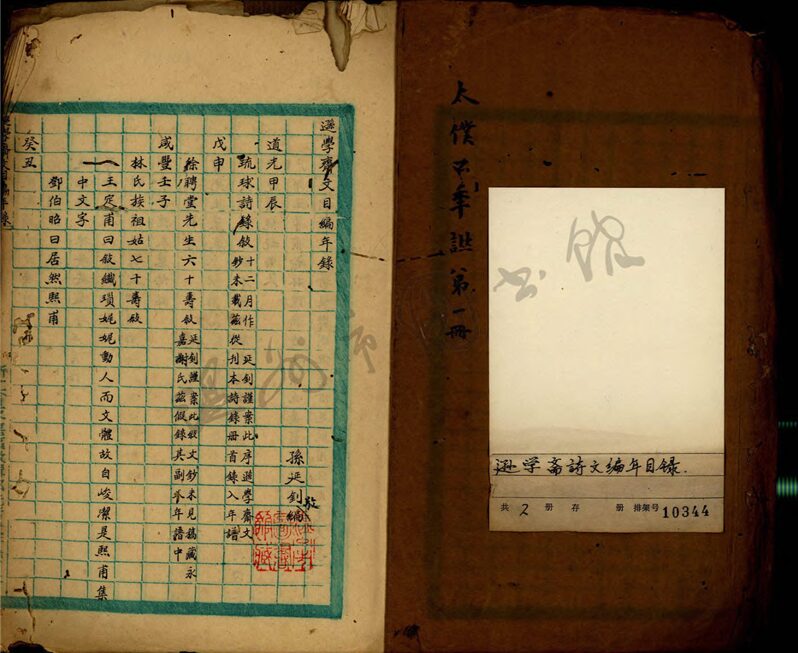 太僕年譜第一冊
遜学斋詩文編年目錄.
共 2 册 存 册 排架号 10344
遜學齋文目編年錄
孫延釗敬編
道光甲辰
琉球詩錄敘 十二月作 延釗謹案此序遜學齋文
鈔未載茲從刊本詩錄册首錄入年譜
戊申
徐聘堂先生六十壽敘 延釗謹案此敘文鈔未見稿藏永
嘉謝氏茲假錄其副於年譜中
咸豐壬子
林氏族祖姑七十壽敘
王定甫曰敘纖瑣娓娓動人而文體故自峻潔是熙甫集
中文字
鄧伯昭曰居然熙甫
癸丑